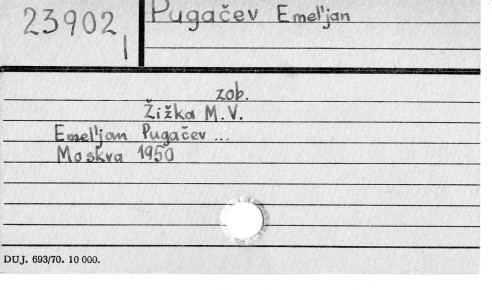 23902
Pugačev Emel'jan
zob.
Žižka M.V.
Emel'jan Pugačev ...
Moskva 1950
DUJ. 693/70. 10 000.